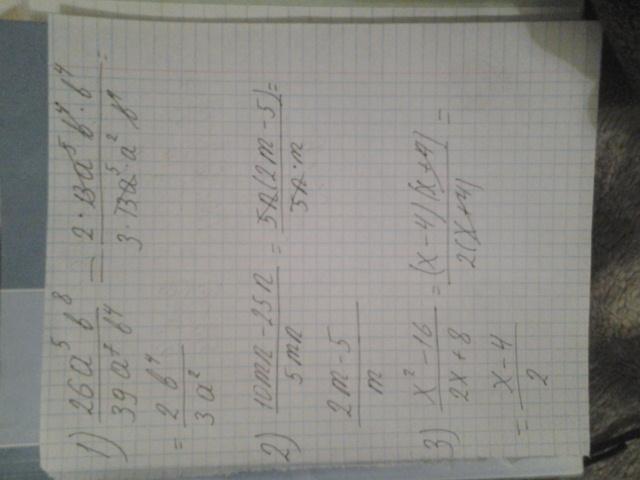 1) 26a⁵b⁸/39a⁷b⁴ = 2·13a⁵b⁴·b⁴/3·13a⁵·a²b⁴ =
= 2b⁴/3a²
2) 10mn-25n/5mn = 5n(2m-5)/5n·m =
2m-5/m
3) x²-16/2x+8 = (x-4)(x+4)/2(x+4) =
= x-4/2